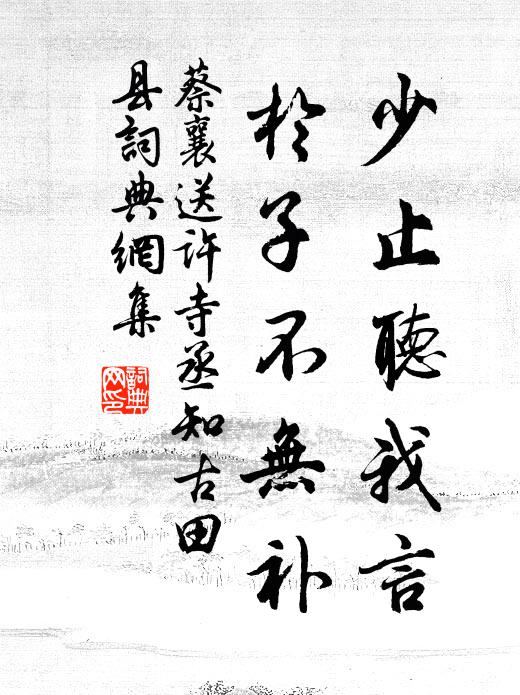 少止聽我言
於子不無补
蔡襄送許寺丞知古田
县詞典網集
詞典网印